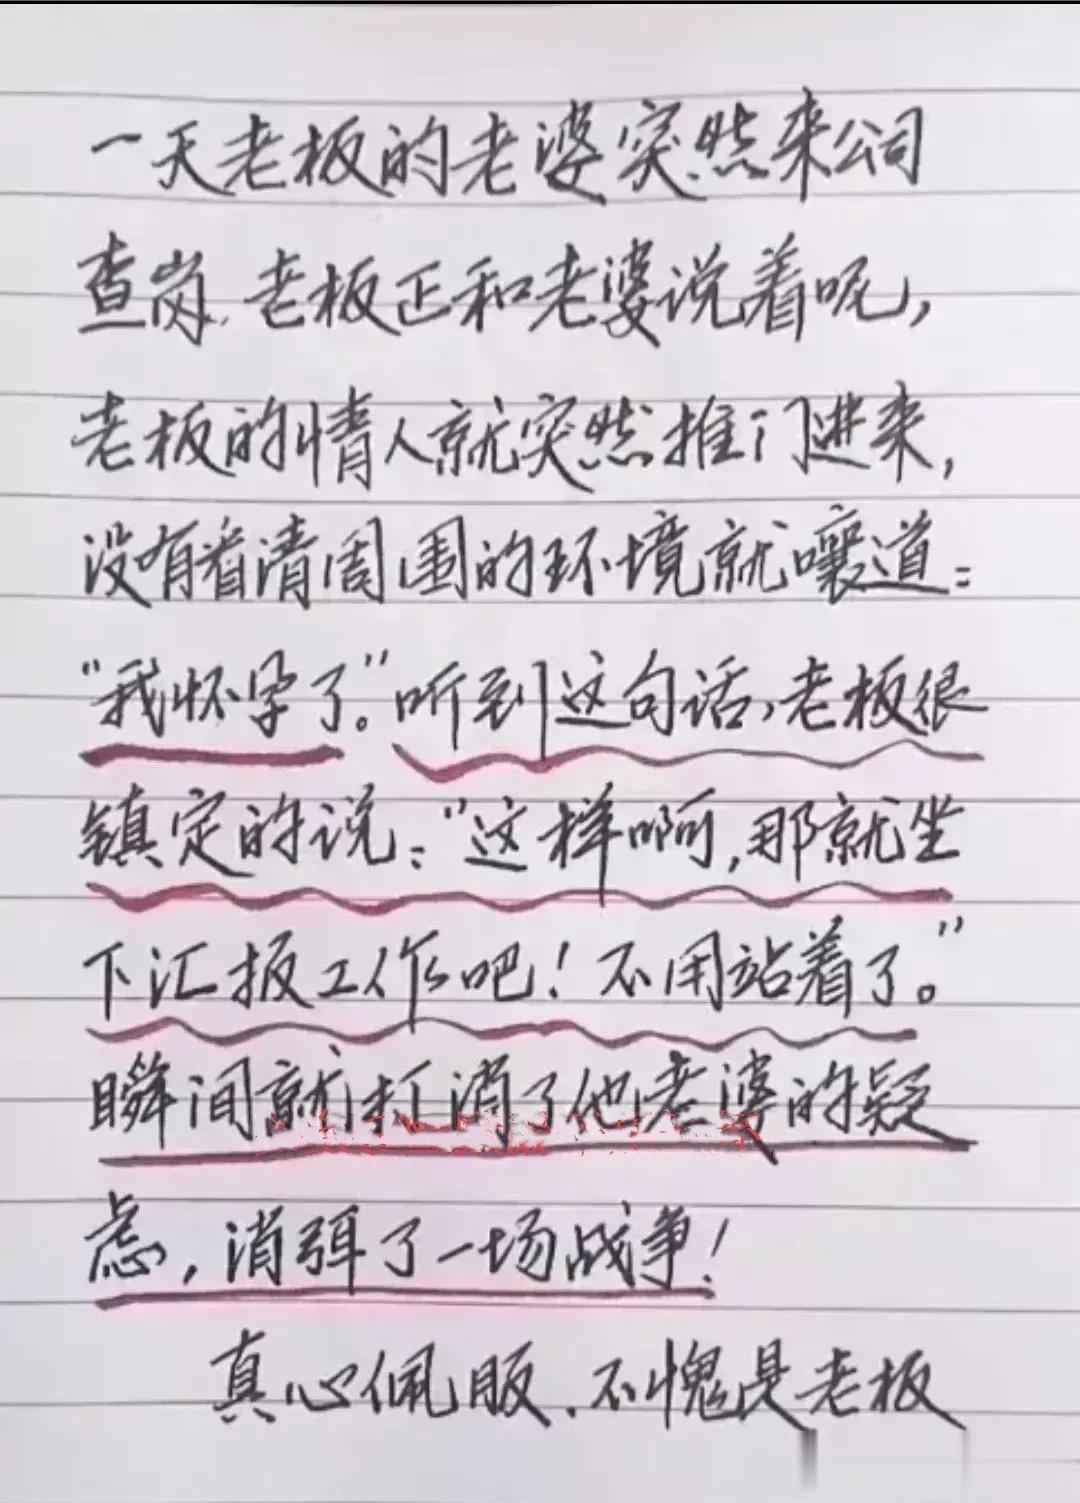 一天老板的老婆突然来公司
查岗,老板正和老婆说着呢,
老板的情人就突然推门进来,
没有看清周围的环境就嚷道:
“我怀孕了。”听到这句话,老板很
镇定的说:“这样啊,那就坐
下汇报工作吧!不用站着了。”
瞬间就打消了他老婆的疑
虑,消弭了一场战争!
真心佩服.不愧是老板